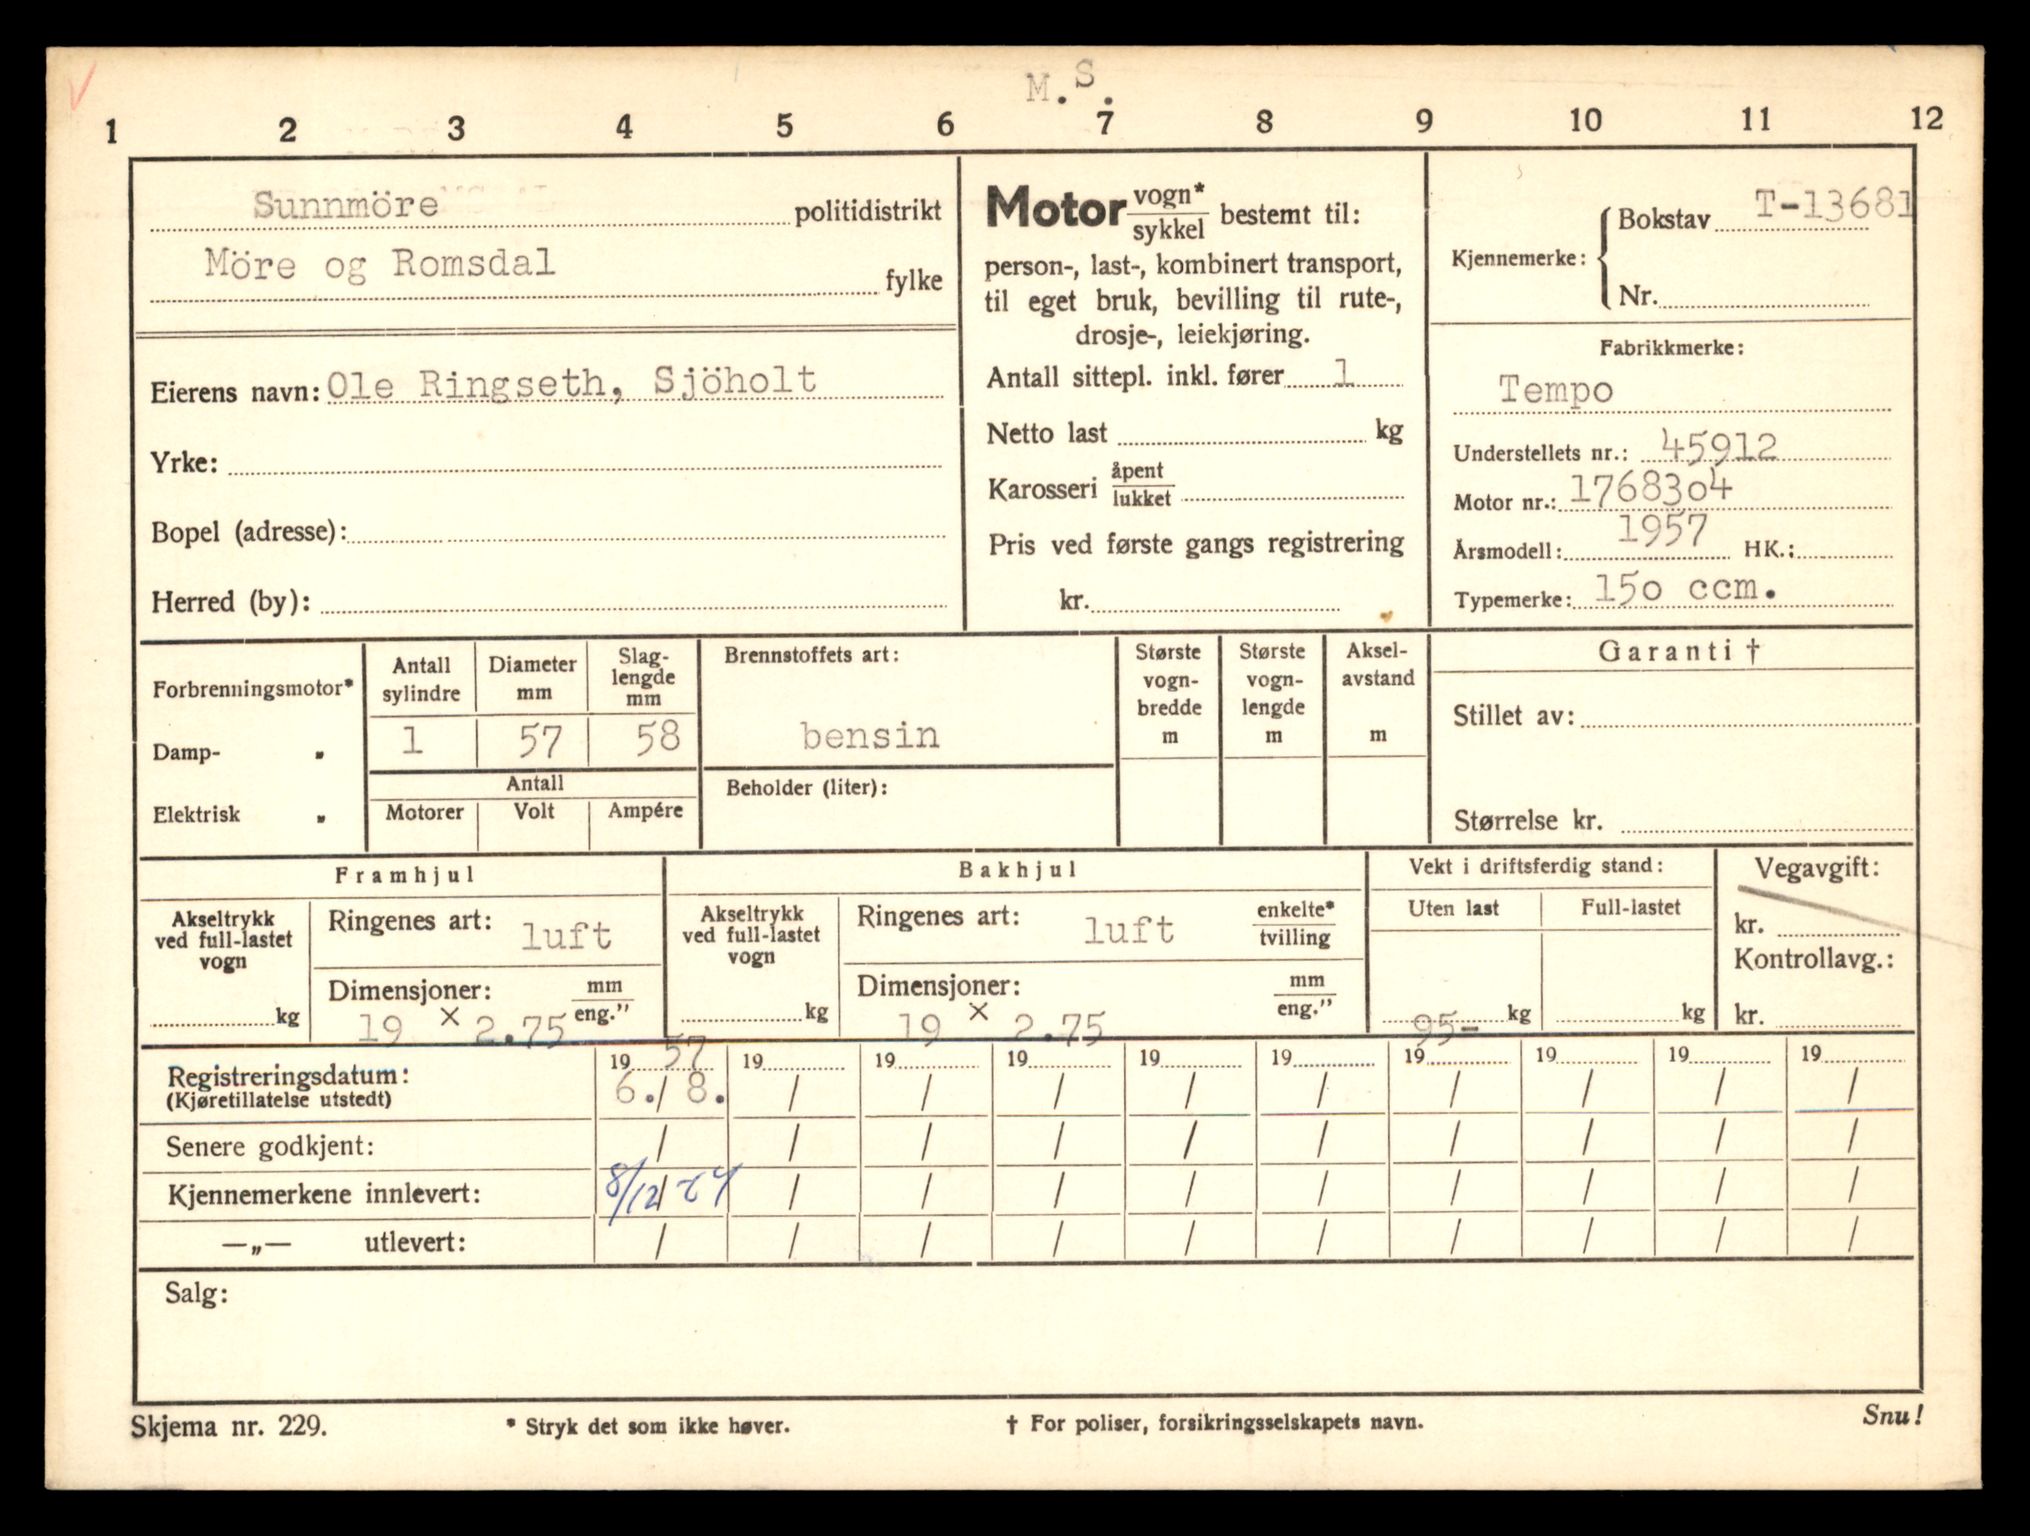 M.S.
1 2 3 4 5 6 7 8 9 10 11 12
Sunnmöre politidistrikt
Möre og Romsdal fylke
Eierens navn: Ole Ringseth, Sjöholt
Yrke:
Bopel (adresse):
Herred (by):
Motor vogn* / sykkel bestemt til:
person-, last-, kombinert transport,
til eget bruk, bevilling til rute-,
drosje-, leiekjøring.
Antall sittepl. inkl. fører 1
Netto last kg
Karosseri åpent / lukket
Pris ved første gangs registrering
kr.
Kjennemerke: Bokstav T-13681
Nr.
Fabrikkmerke:
Tempo
Understellets nr.: 45912
Motor nr.: 1768304
Årsmodell: 1957 HK.:
Typemerke: 150 ccm.
Forbrenningsmotor*
Damp- „
Elektrisk „
Antall sylindre Diameter mm Slag-lengde mm
1 57 58
Antall
Motorer Volt Ampére
Brennstoffets art:
bensin
Beholder (liter):
Største vogn-bredde m
Største vogn-lengde m
Aksel-avstand m
Garanti †
Stillet av:
Størrelse kr.
Framhjul
Akseltrykk ved full-lastet vogn
kg
Ringenes art: luft
Dimensjoner: mm / eng."
19 x 2.75
Bakhjul
Akseltrykk ved full-lastet vogn
kg
Ringenes art: luft enkelte* / tvilling
Dimensjoner: mm / eng."
19 x 2.75
Vekt i driftsferdig stand:
Uten last Full-lastet
95- kg kg
Vegavgift:
kr.
Kontrollavg.:
kr.
19 57 19 19 19 19 19 19 19 19 19
Registreringsdatum: 6. / 8. / / / / / / / / /
(Kjøretillatelse utstedt)
Senere godkjent: / / / / / / / / / /
Kjennemerkene innlevert: 8/12 / / / / / / / / / /
—„— utlevert: / / / / / / / / / /
Salg:
Skjema nr. 229. * Stryk det som ikke høver. † For poliser, forsikringsselskapets navn. Snu!